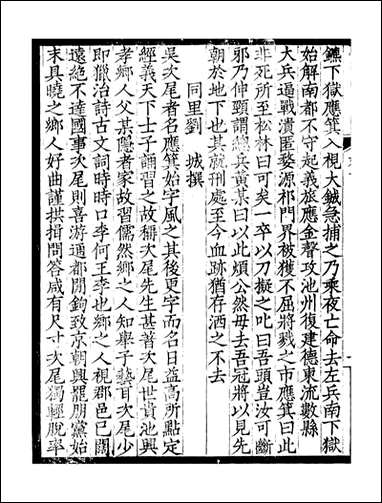 鑣下獄應箕入視大鋮急捕之乃乘夜亡命去左兵南下獄
始解南都不守起義旅應金聲攻池州復建德東流數縣
大兵逼戰潰匿婺源祁門界被獲不屈將戮之市應箕曰此
非死所至松林曰可矣一卒以刀擬之叱曰吾頭豈汝可斷
邪乃伸頸謂總兵黃某曰以此煩公然毋去吾冠將以見先
朝於地下也其就刑處至今血跡猶存洒之不去
同里劉城撰
吳次尾者名應箕始字風之其後更字而名日益高所點定
經義天下士子誦習之故稱次尾先生甚著次尾世貴池興
孝鄉人父某隱者家故習儒然鄉之人知舉子藝耳次尾少
即獵治詩古文詞時時口李何王李也鄉之人視郡邑已闊
遠絶不達國事次尾則喜游通都開鉤致京朝興罷朋黨始
末具曉之鄉人好曲謹拱揖問答咸有尺寸次尾獨輕脫率